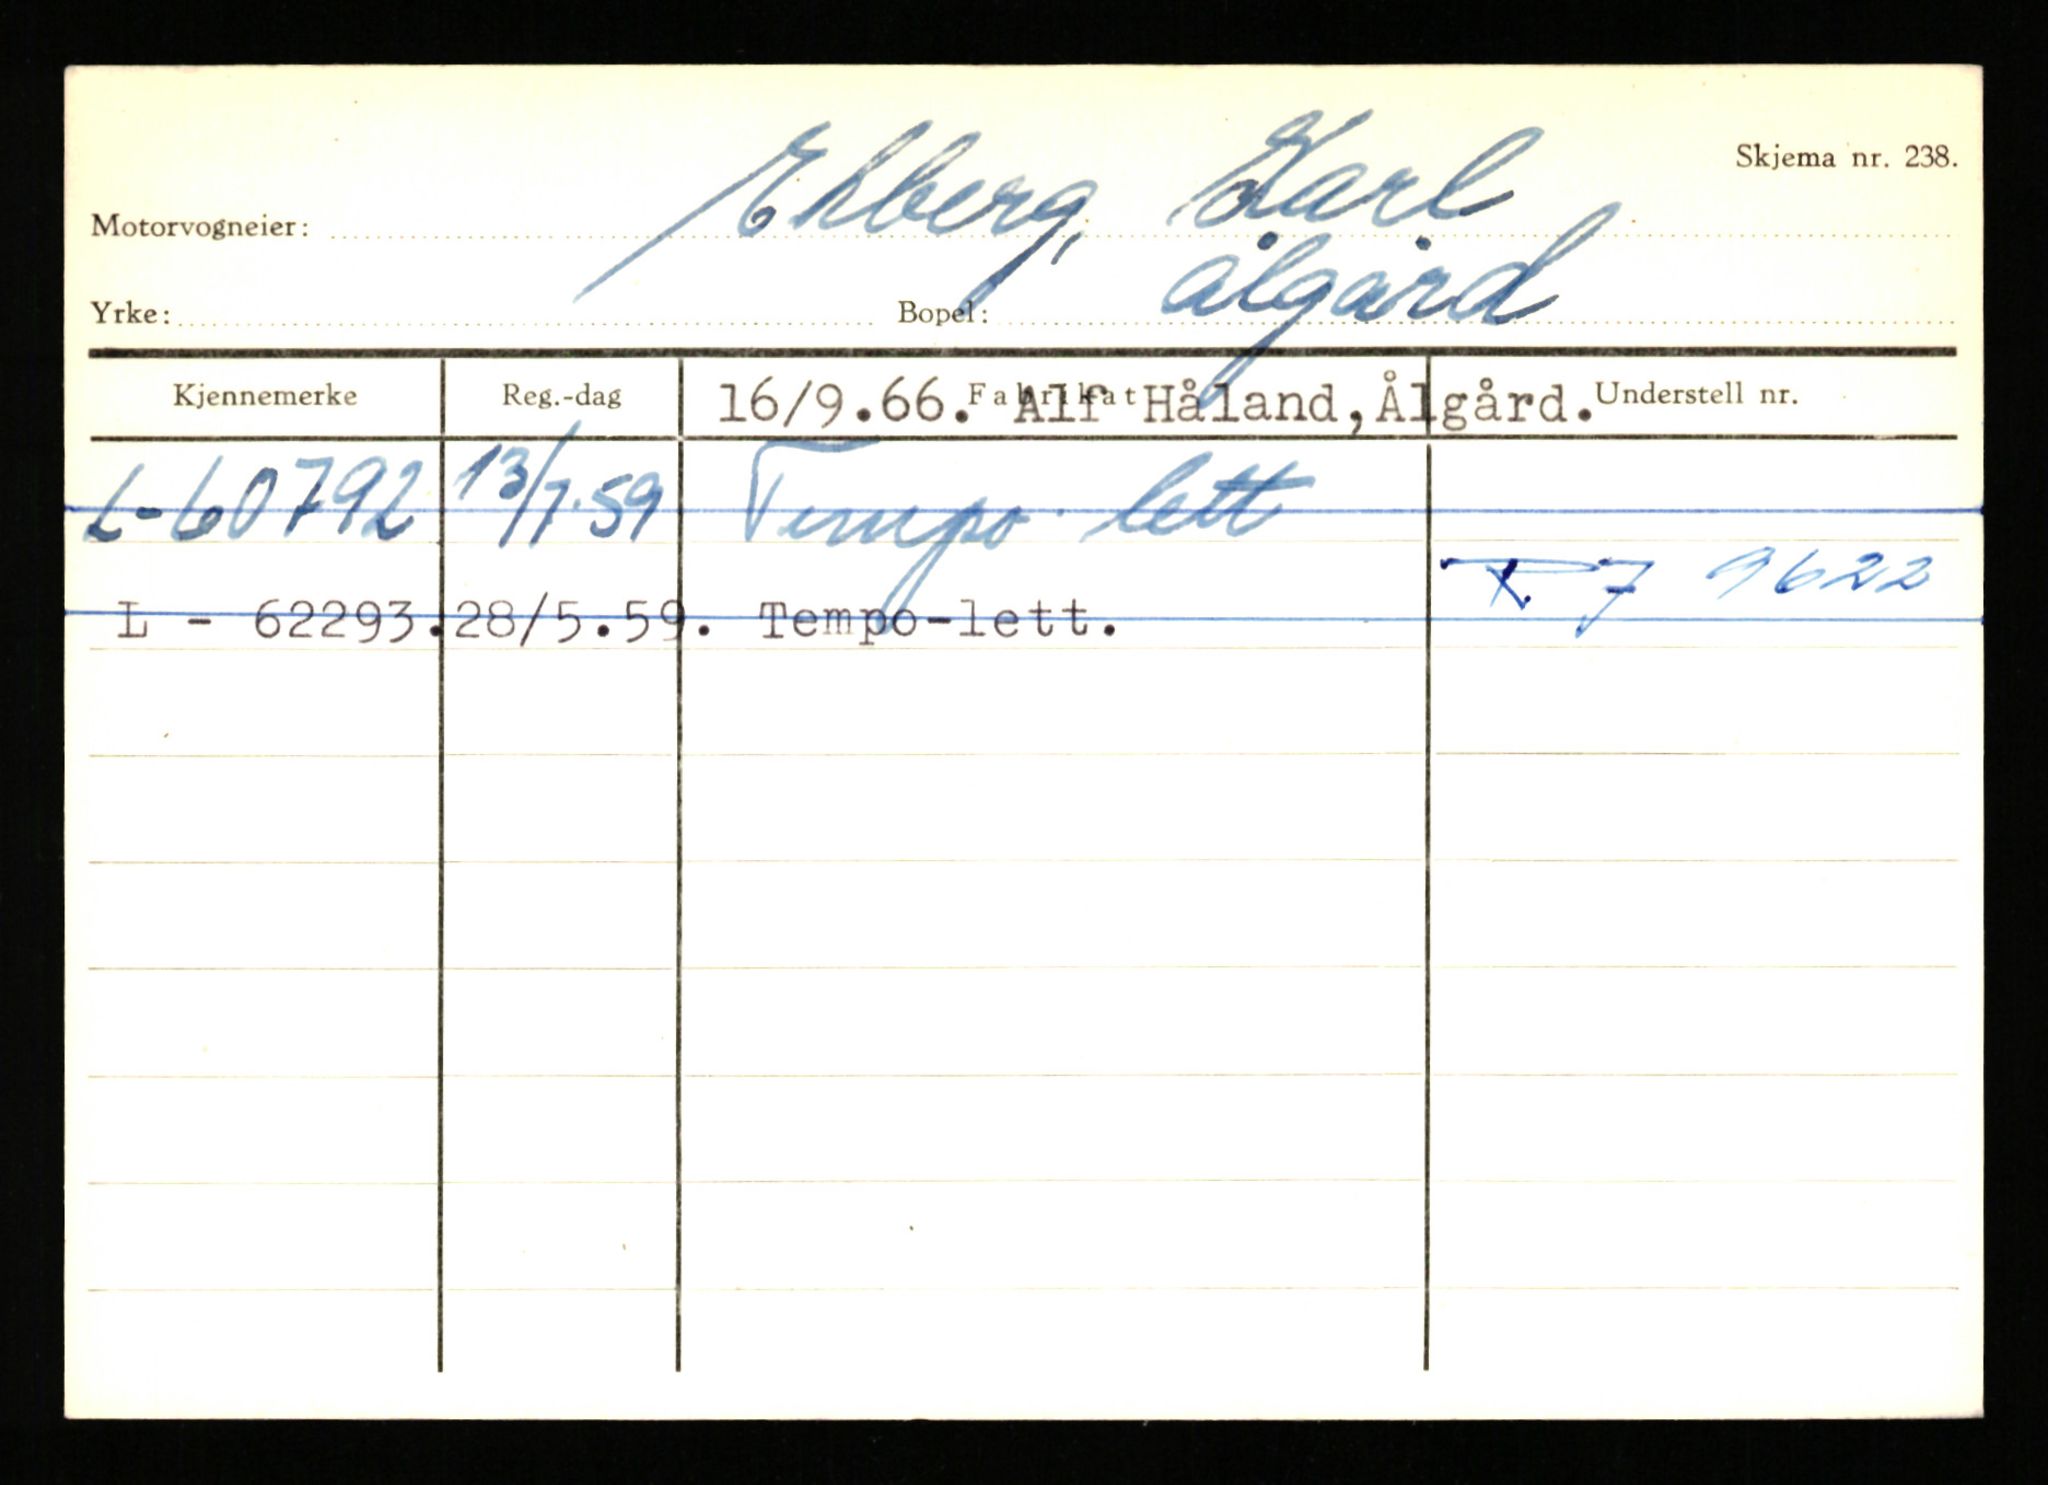 Skjema nr. 238.
Motorvogneier: Ekberg, Karl
Yrke: Bopel: Ålgård
Kjennemerke Reg.-dag Fabrikat Understell nr.
16/9.66. Alf Håland, Ålgård.
L-60792 13/7-59 Tempo lett
R7 9622
L - 62293. 28/5.59. Tempo-lett.